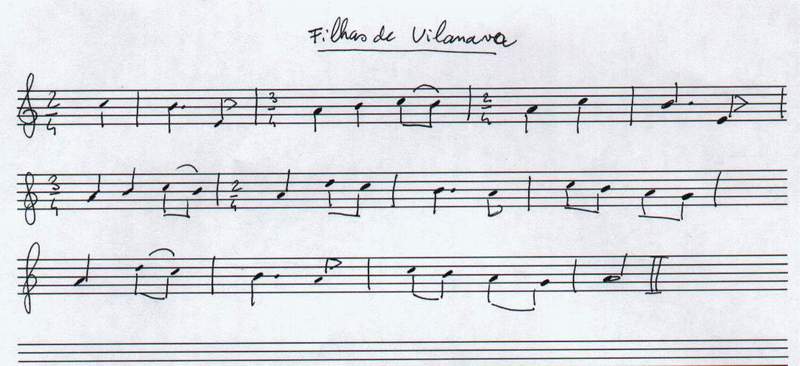 Filhas de Vilanava
2/4 3/4 2/4
3/4 2/4